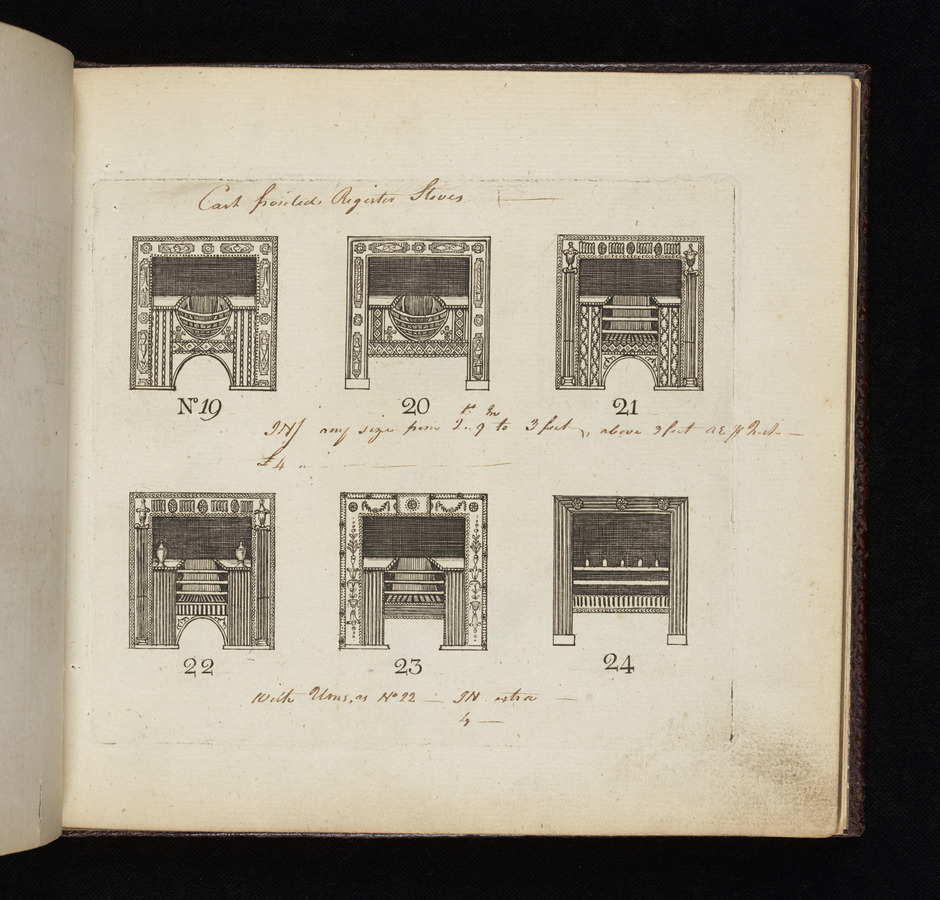 Cast fronted Register Stoves
Nº 19 20 21
IN/ any size from 2..9 to 3 feet, above 3 feet
£4 "
22 23 24
With Urns, as Nº 22 — IN extra —